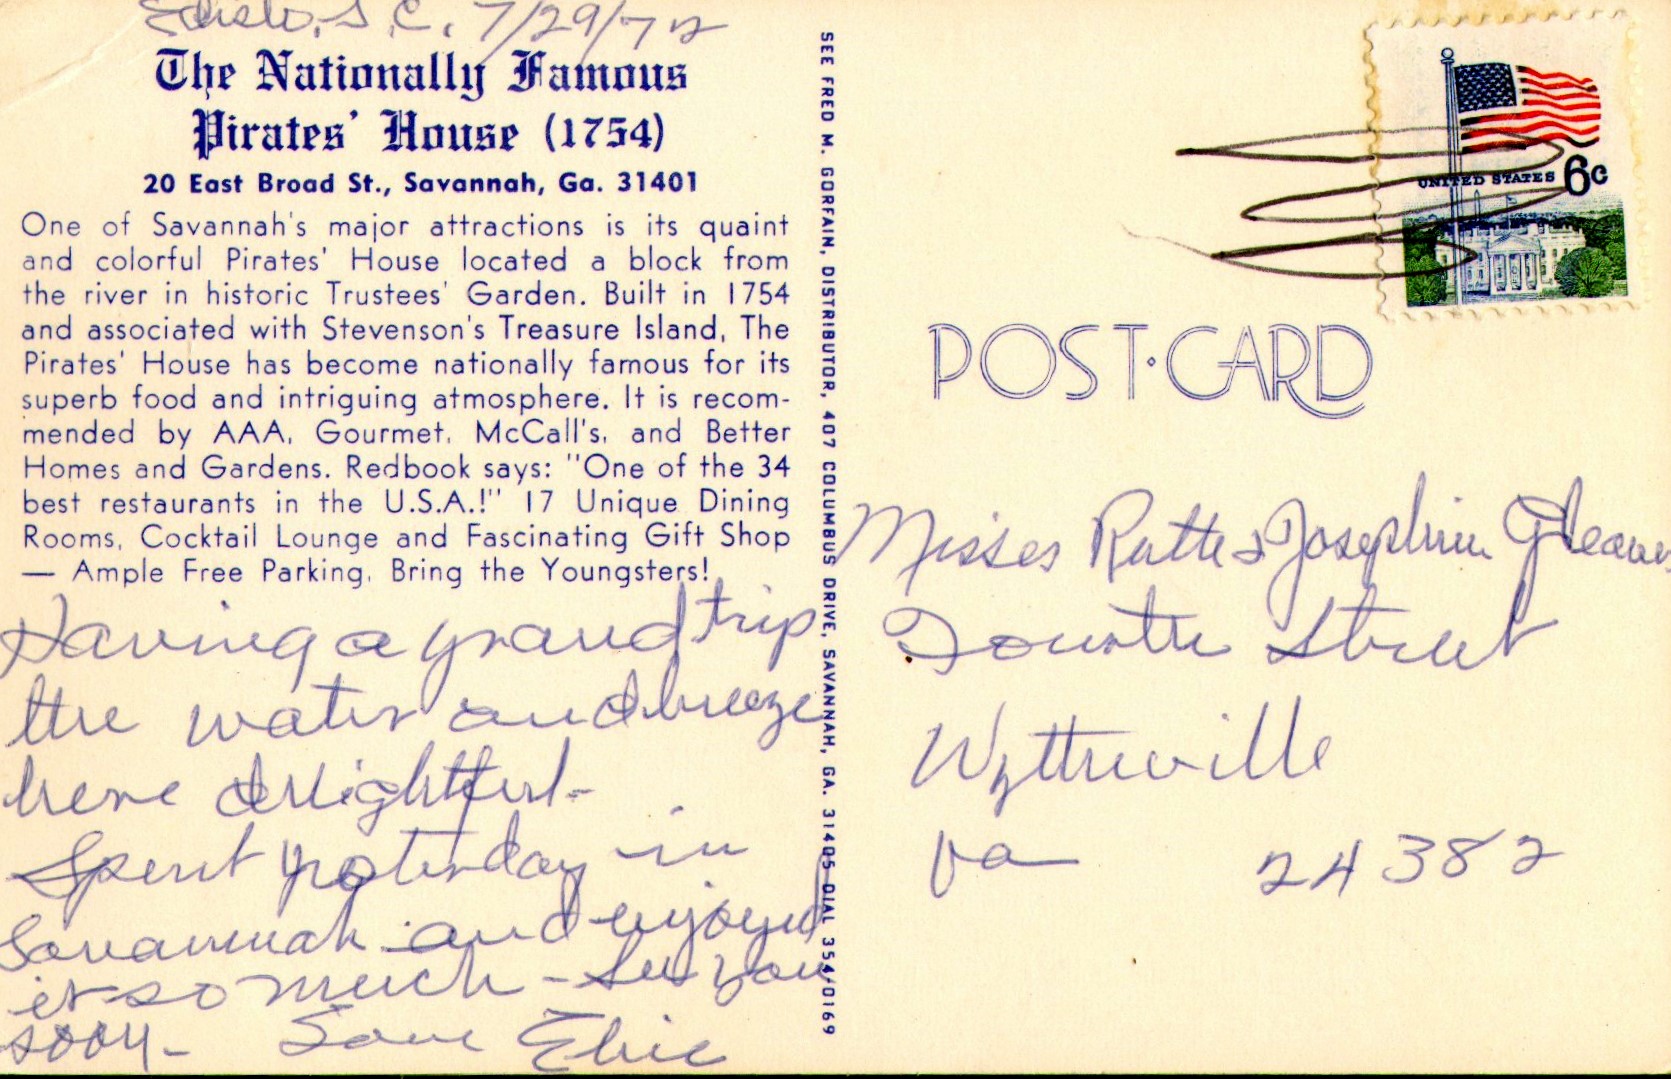 Edisto, S.C. 7/29/72
The Nationally Famous
Pirates' House (1754)
20 East Broad St., Savannah, Ga. 31401
One of Savannah's major attractions is its quaint
and colorful Pirates' House located a block from
the river in historic Trustees' Garden. Built in 1754
and associated with Stevenson's Treasure Island, The
Pirates' House has become nationally famous for its
superb food and intriguing atmosphere. It is recom-
mended by AAA, Gourmet, McCall's, and Better
Homes and Gardens. Redbook says: "One of the 34
best restaurants in the U.S.A.!" 17 Unique Dining
Rooms, Cocktail Lounge and Fascinating Gift Shop
— Ample Free Parking. Bring the Youngsters!
Having a grand trip
the water and breeze
here delightful-
Spent yesterday in
Savannah and enjoyed
it so much - See you
soon - Love
SEE FRED M. GORFAIN, DISTRIBUTOR, 407 COLUMBUS DRIVE, SAVANNAH, GA. 31405 DIAL 354-0169
UNITED STATES 6c
POST·CARD
Misses & Josephine
Fourth Street
Wytheville
Va 24382